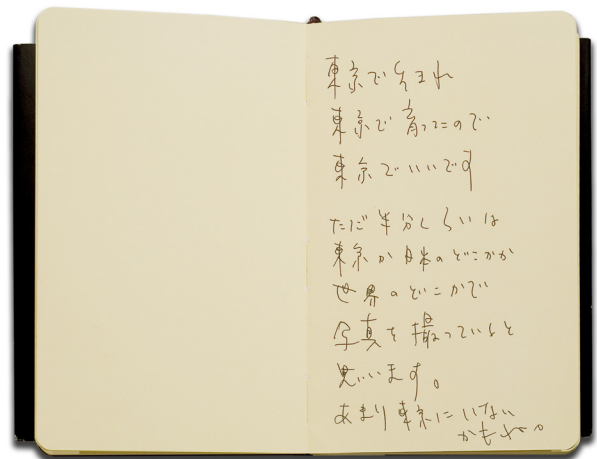 東京で生まれ
東京で育ったので
東京でいいです
ただ半分くらいは
東京か日本のどこかか
世界のどこかで
写真を撮っていると
思います。
あまり東京にいない
かもね。